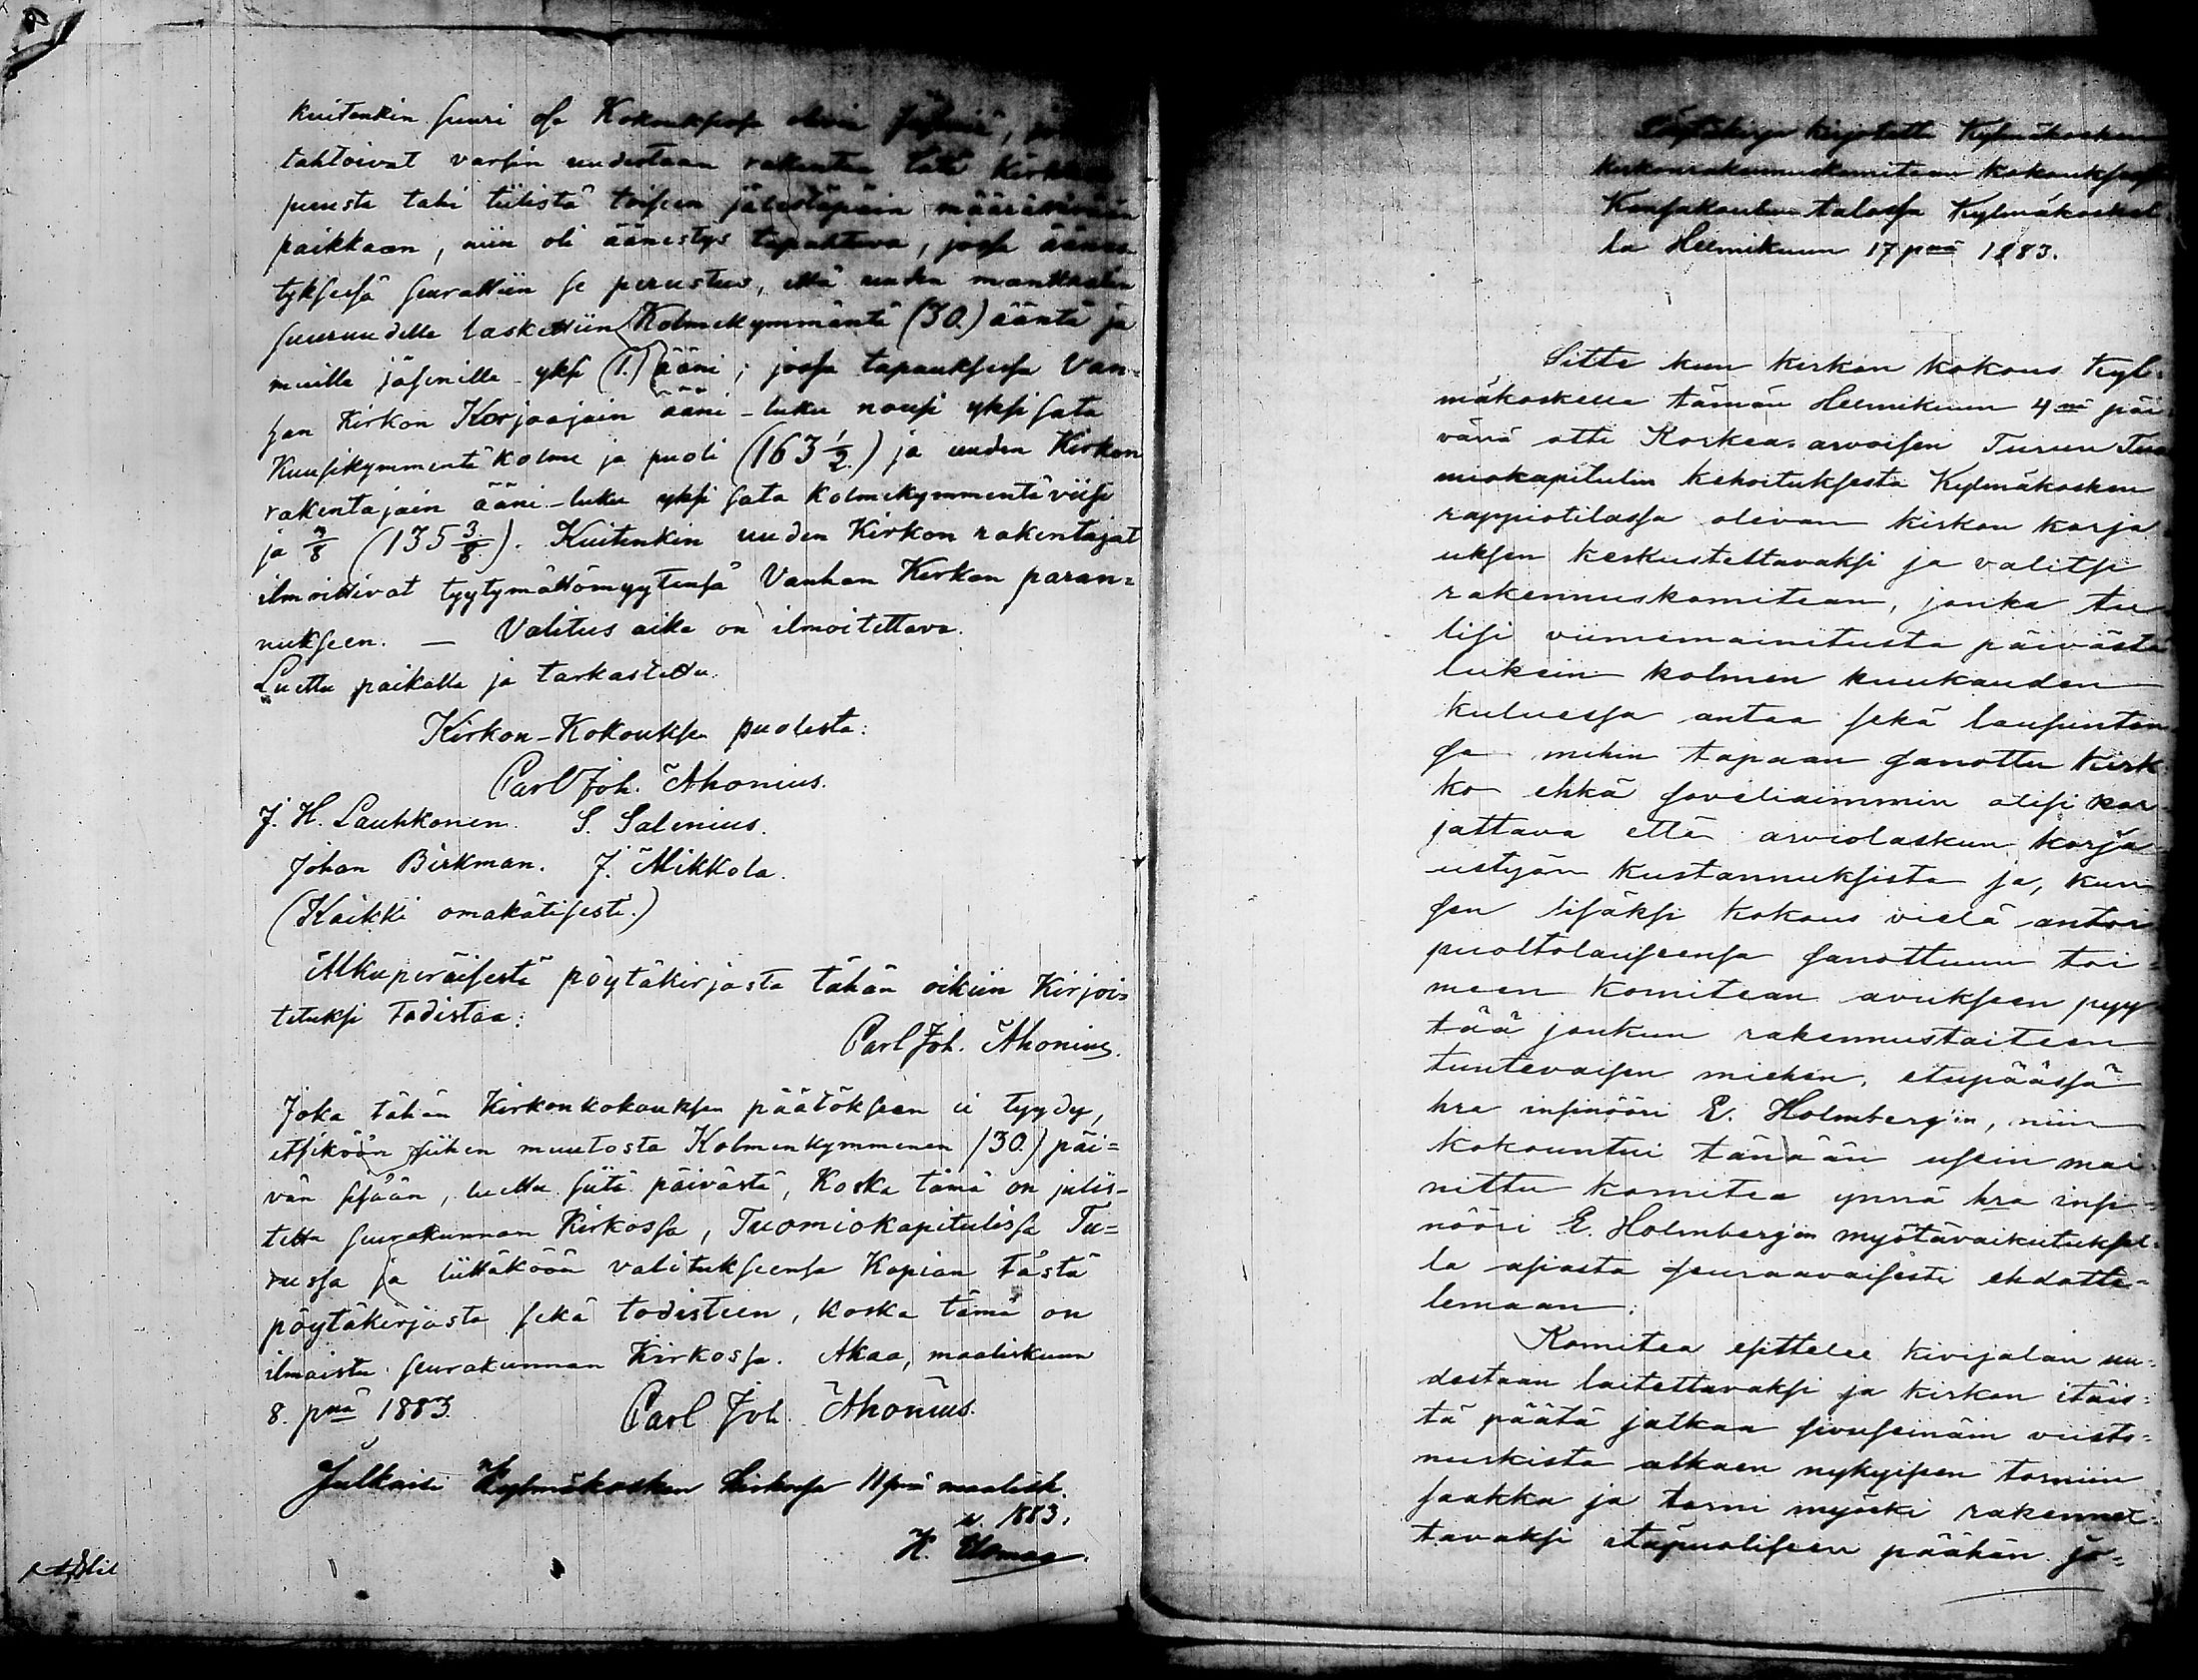 kuitenkin suuri osa Kokouksessa olivia Jäseniä,
tahtoivat varsin uudestaan rakentaa tätä Kirkkoa
puusta tahi tiilistä toiseen jälestäpäin määrättävään
paikkaan, niin oli äänestys tapahtuva, jossa äänes-
tyksessä seurattiin se perustus, että uuden manttaalin
suuruudelle laskettiin Kolmekymmäntä (30.) ääntä ja
muille jäsenille yksi (1.) ääni; jossa tapauksessa Van=
han Kirkon Korjaajain ääni-luku nousi yksi sata
Kuusikymmentä kolme ja puoli (163 1/2.) ja uuden Kirkon
rakentajain ääni-luku yksi sata kolmekymmentä viisi
ja 3/8 (135 3/8). Kuitenkin uuden Kirkon rakentajat
ilmoittivat tyytymättömyytensä Vanhan Kirkon paran=
nukseen. — Valitus aika on ilmoitettava.
Luettu paikalla ja tarkastettu.
Kirkon-Kokouksen puolesta:
Carl Joh. Ahonius.
J. H. Laukkonen. S. Salenius.
Johan Birkman. J. Mikkola.
(Kaikki omakätisesti.)
Alkuperäisestä pöytäkirjasta tähän oikiin Kirjois
tetuksi todistaa:
Carl Joh. Ahonius.
Joka tähän Kirkonkokouksen päätökseen ei tyydy,
etsiköön siihen muutosta Kolmenkymmenen (30.) päi=
vän sisään, luettu siitä päivästä, Koska tämä on julis-
tettu seurakunnan Kirkossa, Tuomiokapitulissa Tu=
russa ja liittäköön valitukseensa Kopian tästä
pöytäkirjasta sekä todisteen, koska tämä on
ilmaistu seurakunnan Kirkossa. Akaa, maaliskuun
8. pnä 1883. Carl Joh. Ahonius.
Julkaisi Kylmäkosken Kirkossa 11 pnä maalisk.
v. 1883.
H.
Pöytäkirja kirjotettu Kylmäkosken
kirkonrakennuskomitean kokouksessa
Kansakoulun talossa Kylmäkoskel
la Helmikuun 17 pnä 1883.
Sitte kun kirkon kokous Kyl=
mäkoskella tämän Helmikuun 4 nä päi
vänä otti Korkea-arvoisen Turun Tuo
miokapitulin kehoituksesta Kylmäkosken
rappiotilassa olevan kirkon korja
uksen keskusteltavaksi ja valitsi
rakennuskomitean, jonka tu
lisi viimemainitusta päivästä
lukein kolmen kuukauden
kuluessa antaa sekä lausunton
sa mihin tapaan sanottu kirk
ko ehkä soveliaimmin olisi kor
jattava että arviolaskun korja
ustyön kustannuksista ja, kun
sen lisäksi kokous vielä antoi
puoltolauseensa sanottuun toi
meen komitean avukseen pyy
tää jonkun rakennustaiteen
tuntevaisen miehen, etupäässä
hra insinööri E. Holmberg'in, niin
kokountui tänään usein mai
nittu komitea ynnä hra insi
nööri E. Holmberg'in myötävaikutuksel
la asiasta seuraavaisesti ehdotte=
lemaan:
Komitea esittelee kivijalan uu=
destaan laitettavaksi ja kirkon itäis=
tä päätä jatkaa sivuseinäin viisto=
nurkista alkaen nykyisen tornin
saakka ja torni myöski rakennet=
tavaksi itäpuoliseen päähän jo=